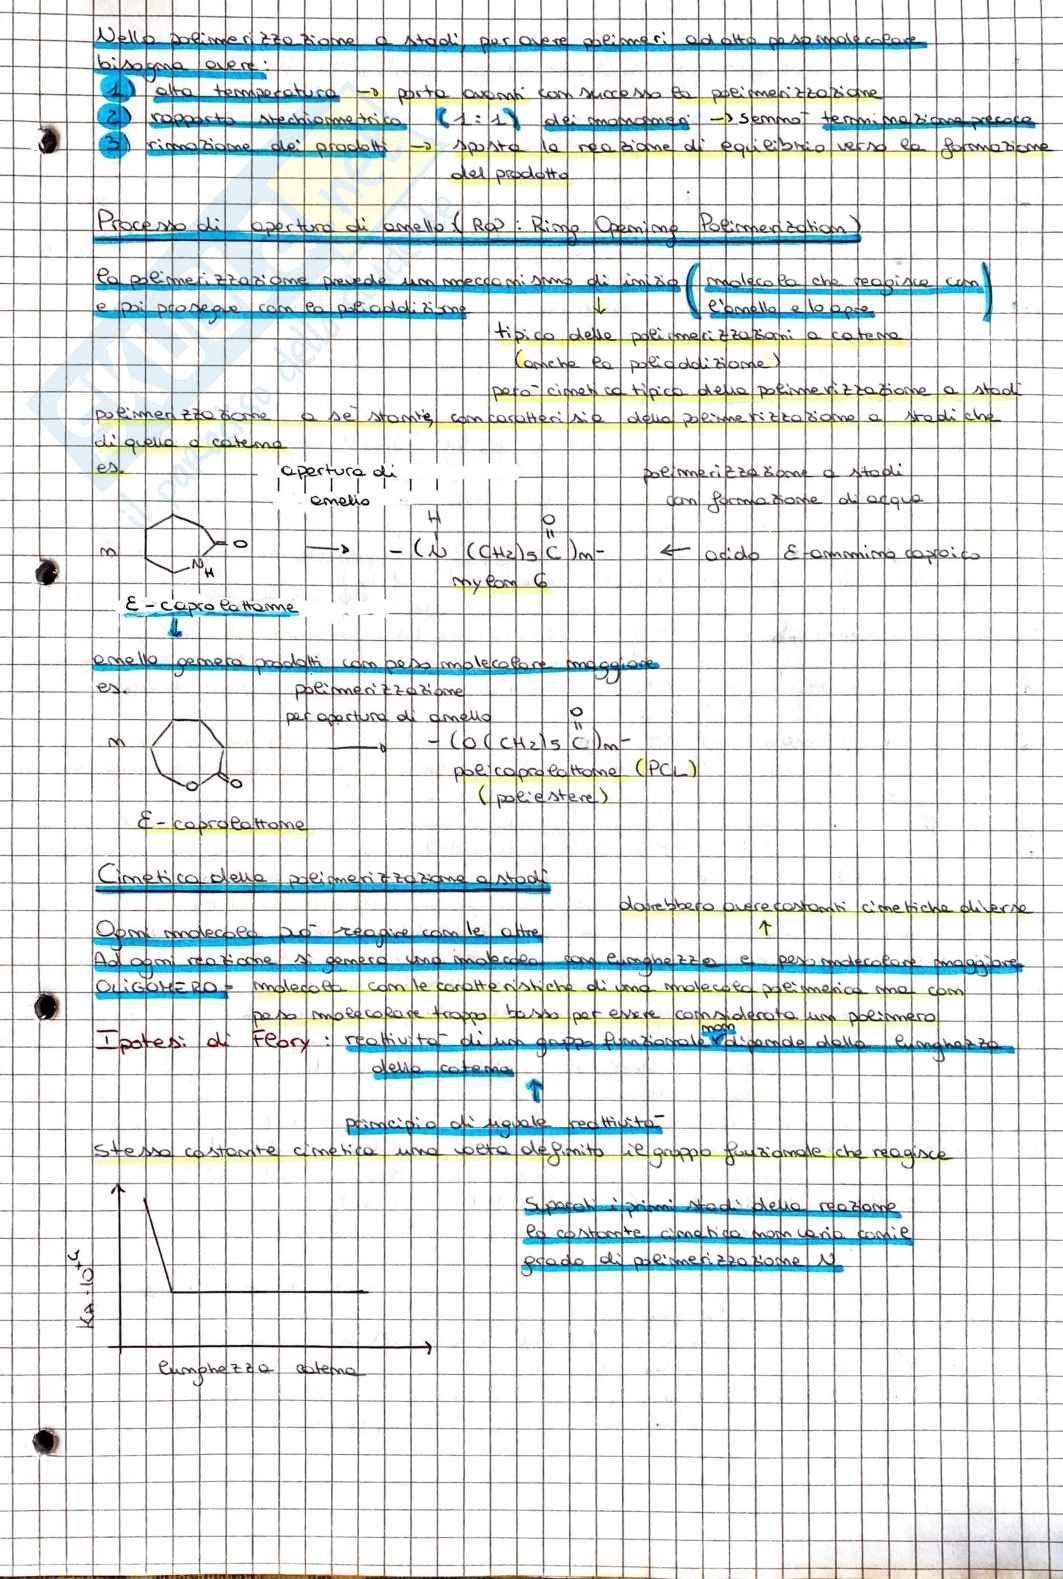 Nella polimerizzazione a stadi, per avere polimeri ad alto peso molecolare
bisogna avere:
1) alta temperatura → porta avanti con successo la polimerizzazione
2) rapporto stechiometrico (1:1) dei monomeri → sennò terminazione precoce
3) rimozione dei prodotti → sposta la reazione di equilibrio verso la formazione
del prodotto
Processo di apertura di anello (ROP: Ring Opening Polimerization)
la polimerizzazione prevede un meccanismo di inizio (molecola che reagisce con
e poi prosegue con la poliaddizione l'anello e lo apre)
↓
tipico delle polimerizzazioni a catena
(anche la poliaddizione)
però cinetica tipica della polimerizzazione a stadi
polimerizzazione a sé stante, con caratteri sia della polimerizzazione a stadi che
di quella a catena
es. apertura di anello
polimerizzazione a stadi
con formazione di acqua
n O N H → -(N H (CH2)5 C O)n- ← acido ε-amminocaproico
nylon 6
ε-caprolattame
↓
anello genera prodotti con peso molecolare maggiore
es. polimerizzazione
per apertura di anello
n O O → -(O(CH2)5 C O)n-
policaprolattame (PCL)
(poliestere)
ε-caprolattame
Cinetica della polimerizzazione a stadi
dovrebbero avere costanti cinetiche diverse
↑
Ogni molecola può reagire con le altre
Ad ogni reazione si genera una molecola con lunghezza e peso molecolare maggiore
OLIGOMERO = molecola con le caratteristiche di una molecola polimerica ma con
peso molecolare troppo basso per essere considerato un polimero
Ipotesi di Flory: reattività di un gruppo funzionale non dipende dalla lunghezza
della catena
↑
principio di uguale reattività
stessa costante cinetica una volta definito il gruppo funzionale che reagisce
Superati i primi stadi della reazione
la costante cinetica non varia con il
grado di polimerizzazione N
lunghezza catena
il paradiso dello studente